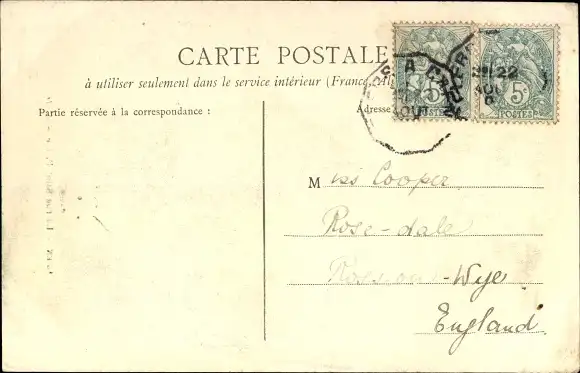 CARTE POSTALE
à utiliser seulement dans le service intérieur (France, Al
Partie réservée à la correspondance :
adresse
5c
POSTES
5c
POSTES
22
AOU
Miss Cooper
Rose-dale
Ross on Wye
England